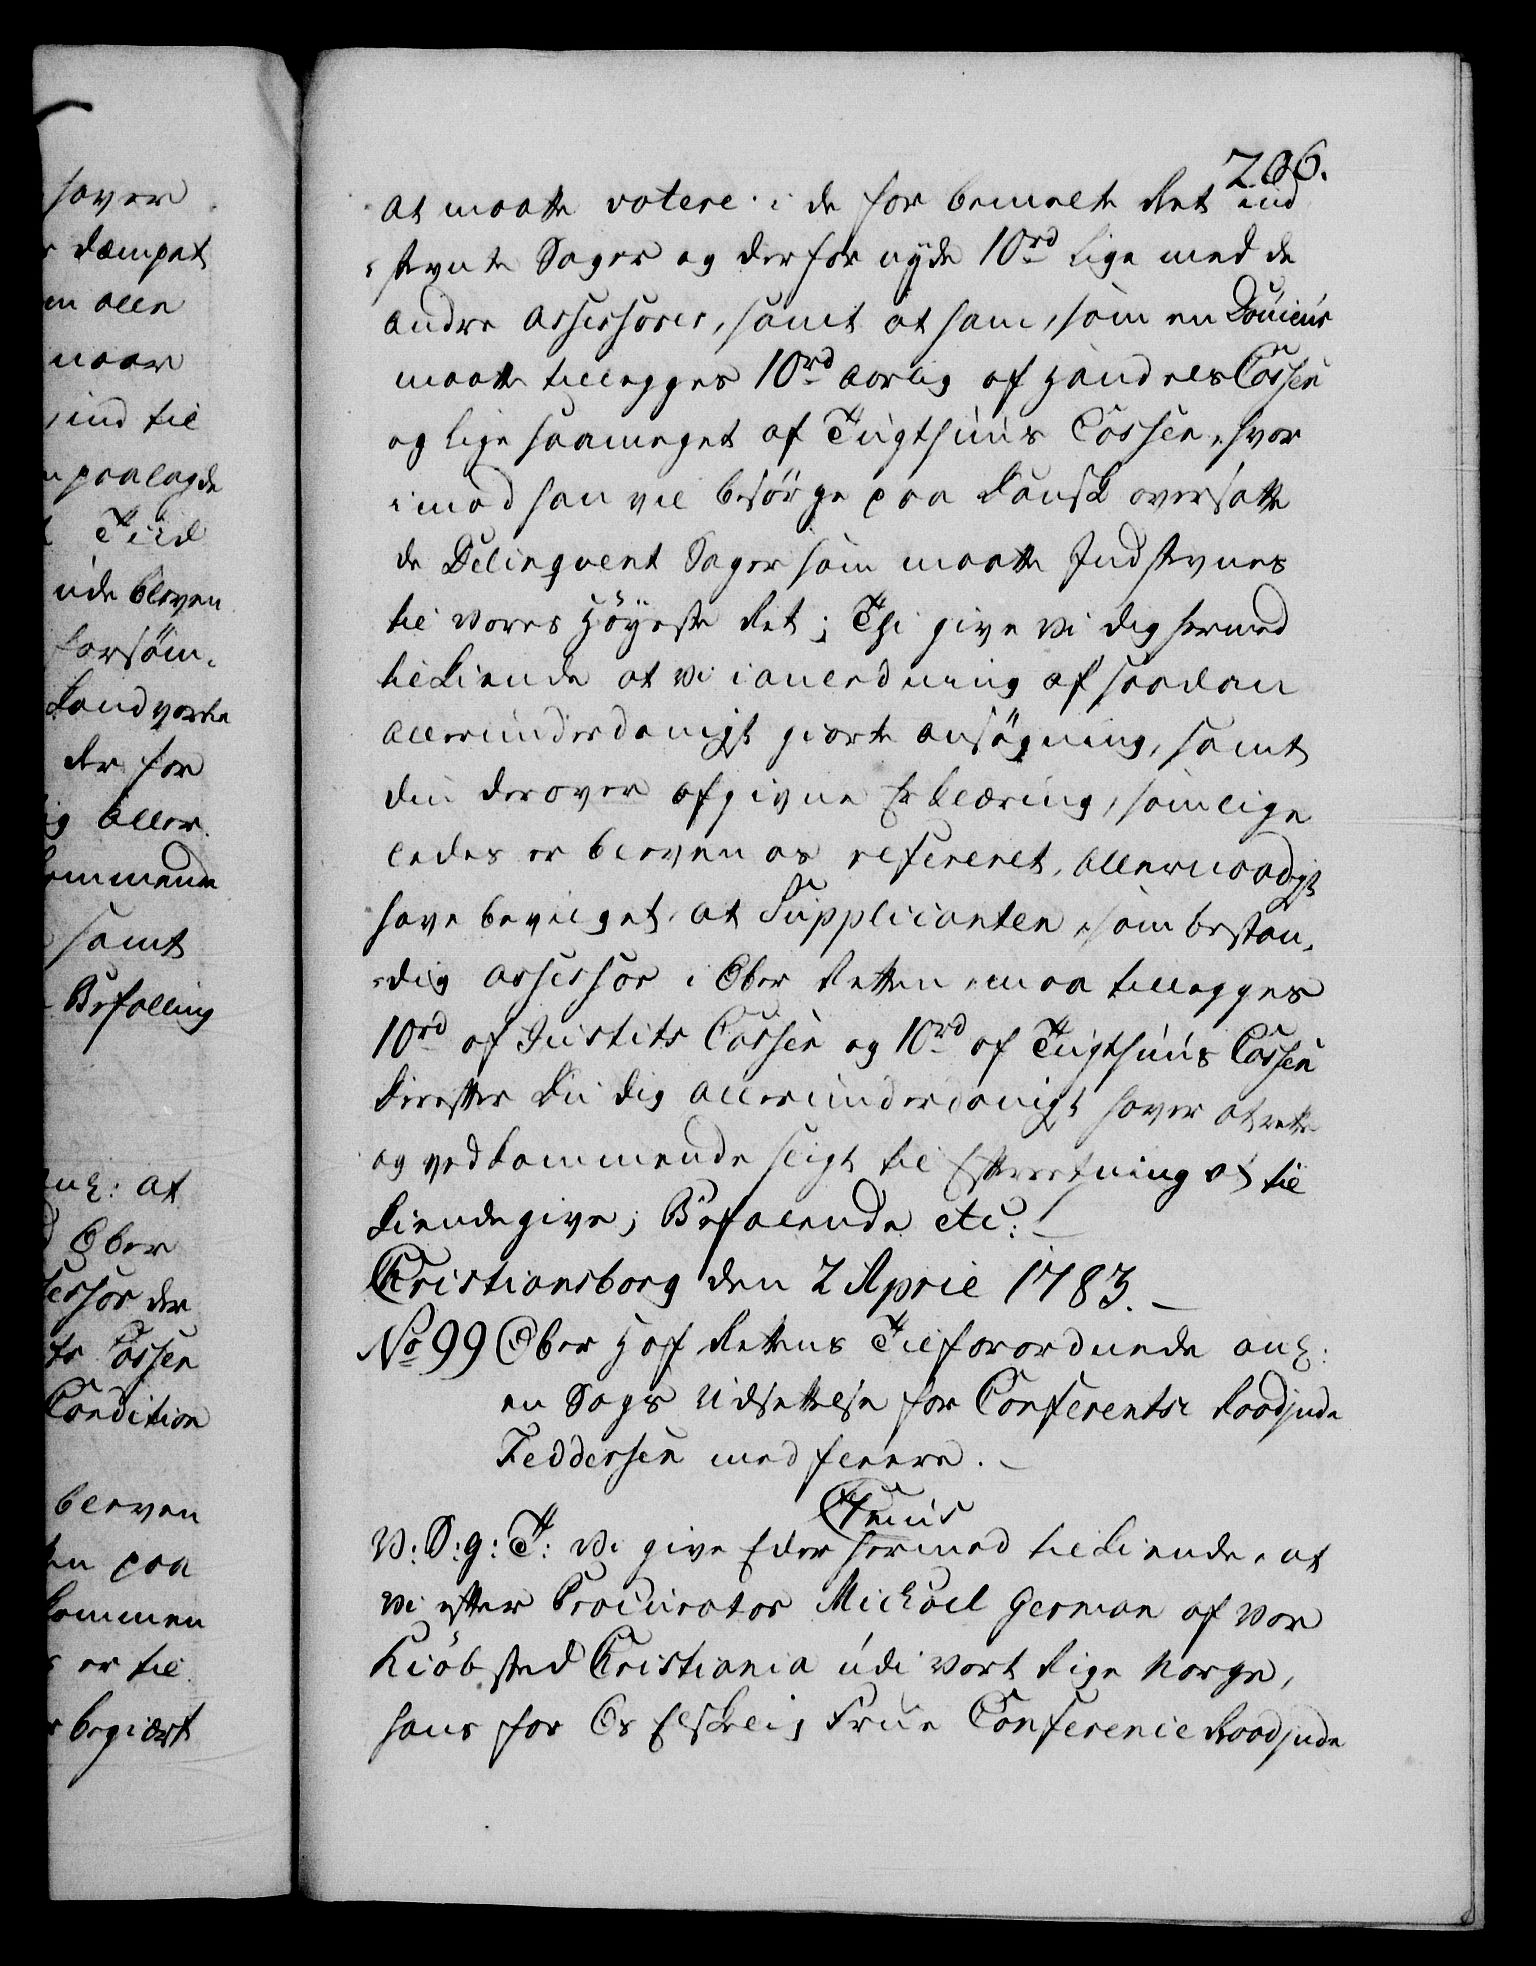 206.
at maatte votere i de for bemelte Ret ind
stevnte Sager og derfor nyde 10rd lige med de
andre Assessorer, samt at ham, som en
maatte tillegges 10rd aarlig af Handels Cassen
og lige saameget af Tugthuus Cassen, hvor
imod han vil besörge paa Dansk oversatte
de Delinqvent Sager som maatte Indstevnes
til vores Höyeste Ret; Thi give Vi dig hermed
tilkiende at vi i anledning af saadan
allerunderdanigst giorte ansögning, samt
din derover afgivne Erklæring, som lige
ledes er bleven os refereret, allernaadigst
have bevilget at Supplicanten som bestan
dig Assessor i Ober Retten maa tillegges
10rd af Justits Cassen og 10rd af Tugthuus Cassen
Derefter Du dig allerunderdanigst haver at rette
og vedkommende sligt til Efterretning at til
kiendegive; Befalende etc: /
Christiansborg den 2 April 1783.
No 99 Ober Hof Rettens Tilforordnede anl:
en Sags Udsettelse for Conferentse Raadinde
Feddersen med fleere.
V: S: g: T: Vi give Eder hermed tilkiende, at
vi efter Procurator Michael German af Vor
Kiöbsted Christiania udi Vort Rige Norge,
hans for Os Elskelig Frue Conference Raadinde
haver
dæmpet
en alle
naar
ind til
paalagde
Tiid
ude bleven
forsöm
Landværne
der for
ig aller
kommende
samt
Befalling
anl: at
Ober
Assessor der
ts Cassen
Condition
bleven
en paa
kommen
er til
begiært